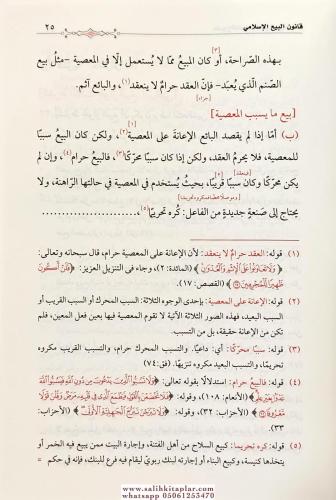 قانون البيع الإسلامي ٢٥
بهذه الصّراحة، أو كان المبيعُ ممّا لا يُستعمل إلّا في المعصية -مثلُ بيع
الصّنم الّذي يُعبَد- فإنّ العقد حرامٌ لا ينعقد(١)، والبائع آثم.
[بيع ما يسبب المعصية]
(ب) أمّا إذا لم يقصد البائع الإعانة على المعصية(٢)، ولكن كان البيعُ سببًا
للمعصية، فلا يحرمُ العقد، ولكن إذا كان سببًا محرّكًا(٣)، فالبيع حرام(٤)، وإن لم
يكن محرّكًا وكان سببًا قريبًا، بحيثُ يُستخدم في المعصية في حالتها الرّاهنة، ولا
يحتاج إلى صَنعةٍ جديدةٍ من الفاعل: كُره تحريمًا(٥)،
(١) قوله: العقد حرامٌ لا ينعقد: لأن الإعانة على المعصية حرام، قال سبحانه وتعالى:
﴿وَلَا تَعَاوَنُوا عَلَى الْإِثْمِ وَالْعُدْوَانِ﴾ (المائدة: ٢)، وجاء في التنزيل العزيز: ﴿فَلَنْ أَكُونَ
ظَهِيرًا لِّلْمُجْرِمِينَ﴾ (القصص: ١٧).
(٢) قوله: الإعانة على المعصية: بإحدى الوجوه الثلاثة: السبب المحرك أو السبب القريب أو
السبب البعيد، فهذه الصور الثلاثة الآتية لا تقوم المعصية فيها بعين فعل المعين، فلم
تكن من الإعانة حقيقة، بل من التسبب.
(٣) قوله: سببًا محرّكًا: أي: داعيًا. والتسبب المحرك حرام، والتسبب القريب مكروه
تحريمًا، والسبب البعيد مكروه تنزيهًا. (فق: ٧٤)
(٤) قوله: فالبيع حرام: استدلالًا بقوله تعالى: ﴿وَلَا تَسُبُّوا الَّذِينَ يَدْعُونَ مِن دُونِ اللَّهِ فَيَسُبُّوا اللَّهَ
عَدْوًا بِغَيْرِ عِلْمٍ﴾ (الأنعام: ١٠٨)، وقوله: ﴿فَلَا تَخْضَعْنَ بِالْقَوْلِ فَيَطْمَعَ الَّذِي فِي قَلْبِهِ مَرَضٌ وَقُلْنَ قَوْلًا
مَّعْرُوفًا﴾ (الأحزاب: ٣٢)، وقوله: ﴿وَلَا تَبَرَّجْنَ تَبَرُّجَ الْجَاهِلِيَّةِ الْأُولَى﴾ (الأحزاب:
٣٣.
(٥) قوله: كره تحريما: كبيع السلاح من أهل الفتنة، وإجارة البيت ممن يبيع فيه الخمر أو
يتخذها كنيسة، وكبيع البناء أو إجارته لبنك ربوي ليقام فيه فرع للبنك، فإنه في حكم =
www.salihkitaplar.com
whatsapp 05061253470